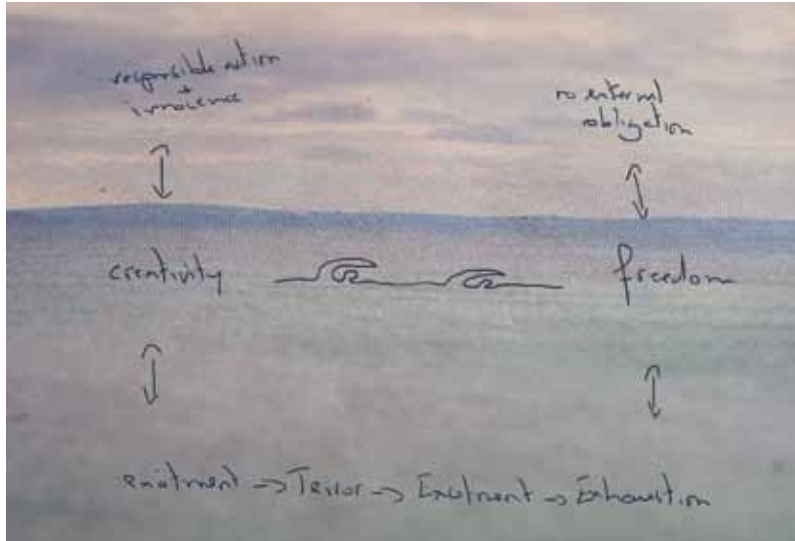 responsible action
+
no external
obligation
creativity
freedom
excitment → Terror → Excitment → Exhaustion